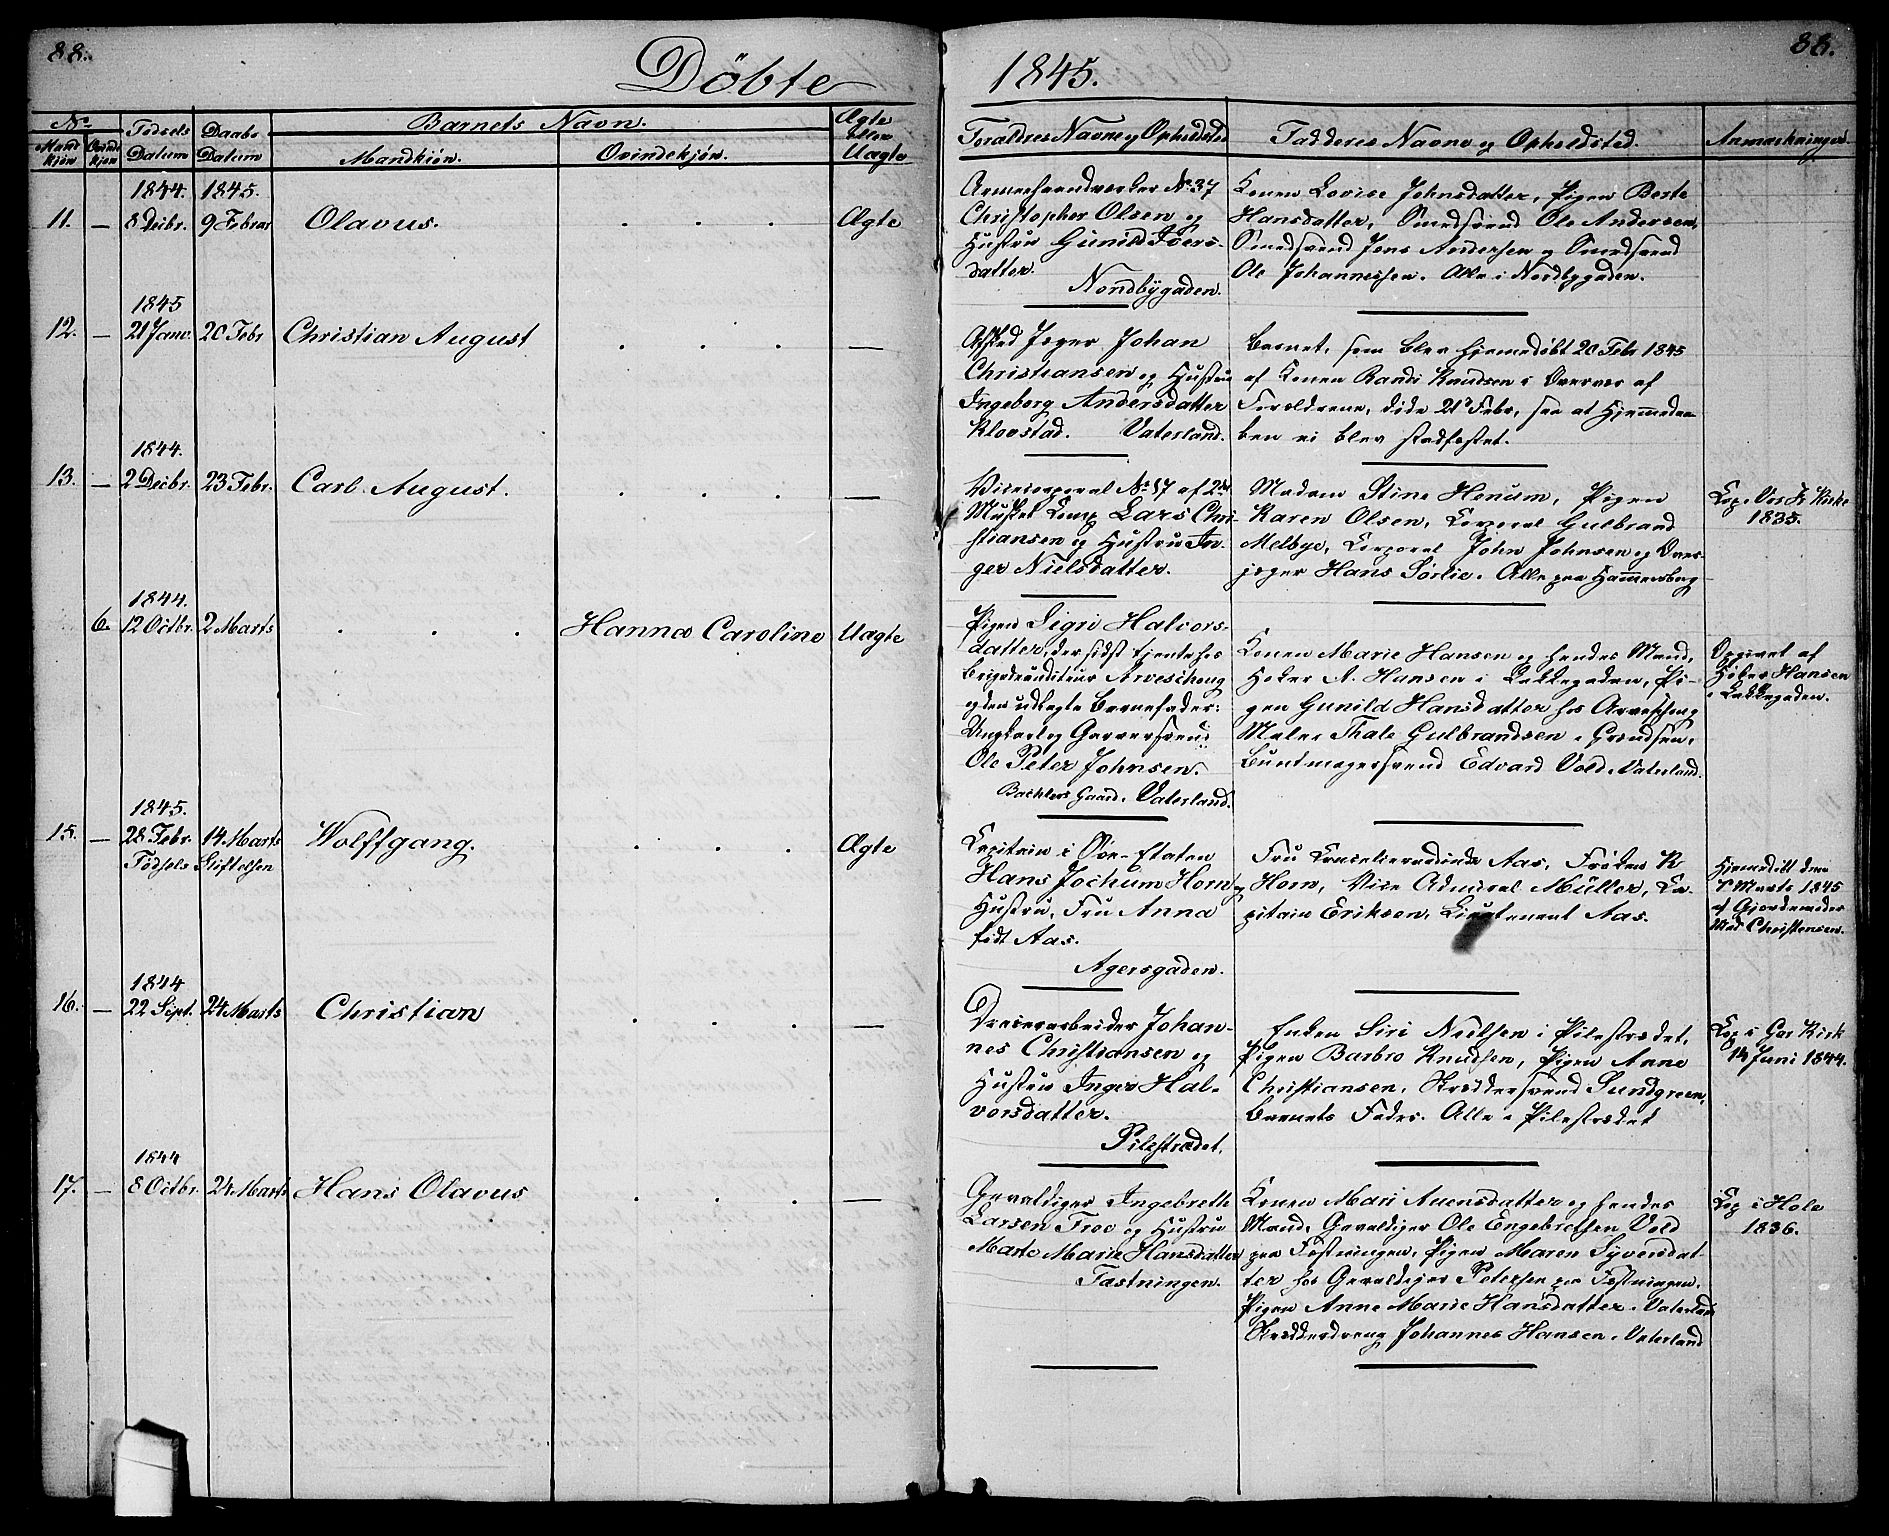 88.
Döbte
1845.
88.
No
Mand kjøn
Qvinde kjøn
Födsels Datum
Daabs Datum
Barnets Navn.
Mandkiön.
Qvindekjön.
Ægte eller Uægte
Forældres Navne og Opholdsted
Fadderes Navne og Opholdsted.
Anmærkninger.
1844. 1845.
11. — 8 Decbr. 9 Februar Olavus. . . . Ægte
No 37
Christopher Olsen og
Hustru Gunild Ivers-
datter.
Nordbygaden.
Konen Lovise Johnsdatter, Pigen Berte
Hansdatter, Smedsvend Ole Andersen,
Smedsvend Jens Andersen og Smedsvend
Ole Johannessen. Alle i Nordbygaden.
1845
12. — 21 Janv. 20 Febr Christian August . . . —
Afsked Jæger Johan
Christiansen og Hustru
Ingeborg Andersdatter
Klovstad. Vaterland.
Barnet, som blev hjemmedöbt 20 Febr 1845
af Konen Randi Knudsen i Overvær af
Forældrene, döde 21 Febr, saa at Hjemmedaa-
ben ei blev stadfæstet.
1844.
13. — 2 Decbr. 23 Febr. Carl August. . . . —
Vicecorporal No 17 af 2den
Musket Comp Lars Chri-
stiansen og Hustru In-
ger Nielsdatter.
Madam Stine Henum, Pigen
Karen Olsen, Corporal Gulbrand
Melbye, Corporal John Johnsen og Over-
jæger Hans Sörlie. Alle paa Hammersborg
Cop. Vor Fr. Kirke
1835.
1844.
6. 12 Octbr. 2 Marts . . . Hanna Caroline Uægte
Pigen Sigri Halvors-
datter, der sidst tjente hos
Brigadeauditeur Arveschoug
og den udlagte Barnefader:
Ungkarl og Garversvend
Ole Peter Johnsen.
Bachlers Gaard. Vaterland.
Konen Marie Hansen og hendes Mand,
Höker A. Hansen i Lakkegaden, Pi-
gen Gunild Hansdatter hos Arveschoug
Maler Thale Gulbrandsen i Grændsen,
Buntmagersvend Edvard Vold. Vaterland.
Opgivet af
Höker Hansen
i Lakkegaden.
1845.
15. — 28 Febr. 14 Marts Wolffgang. . . . Ægte
Födsels Stiftelsen
Capitain i Söe-Etaten
Hans Jochum Horn og
Hustru, Fru Anna
födt Aas.
Agersgaden.
Fru Aas, Fröken K
Horn, Vice Admiral Müller, Ca-
pitain Eriksen, Lieutenant Aas.
Hjemmedöbt den
7 Marts 1845
af Gjordemoder
Mad Christensen.
1844
16. — 22 Sept. 24 Marts Christian . . . —
Johan-
nes Christiansen og
Hustru Inger Hal-
vorsdatter.
Pilestrædet.
Enken Siri Neilsen i Pilestrædet,
Pigen Barbro Knudsen, Pigen Anne
Christiansen, Skræddersvend Sundgreen,
Barnets Fader. Alle i Pilestrædet
Cop i Gar Kirk
14 Juni 1844.
1844
17. — 8 Octbr. 24 Marts Hans Olavus . . . —
Gevaldiger Ingebreth
Larsen Troe og Hustru
Marte Marie Hansdatter
Fæstningen.
Konen Mari Auensdatter og hendes
Mand, Gevaldiger Ole Engebrethsen Vold
paa Fæstningen, Pigen Maren Syversdat-
ter hos Gevaldiger Petersen paa Fæstningen,
Pigen Anne Marie Hansdatter. Vaterland
Skrædderdreng Johannes Hansen. Vaterland
Cop i Hole
1836.